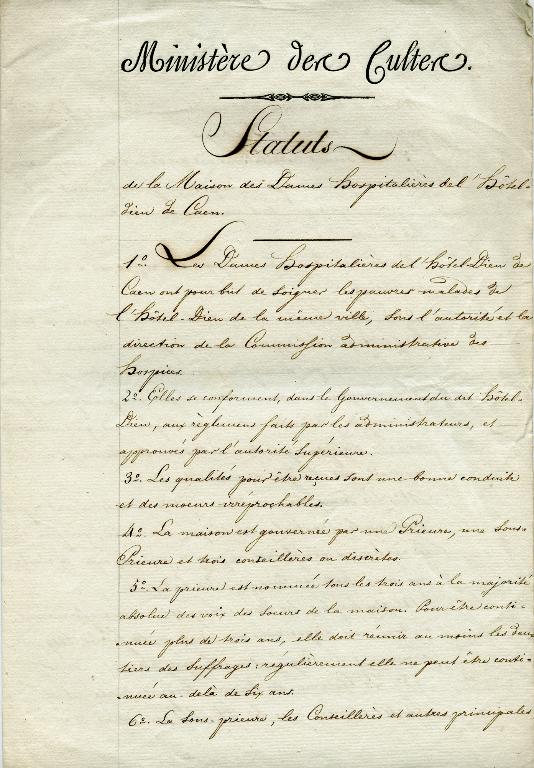 Ministère des Cultes.
Statuts
de la Maison des Dames hospitalières del'hôtel-
dieu de Caen.
1º. Les Dames hospitalières del'hôtel-Dieu de
Caen ont pour but de soigner les pauvres malades de
l'hôtel-Dieu de la même ville, sous l'autorité et la
direction de la Commission administrative des
hospices.
2º. Elles se conforment, dans le Gouvernement du dit hôtel-
Dieu, aux règlemens faits par les administrateurs, et
approuvés par l'autorité supérieure.
3º. Les qualités pour être reçues sont une bonne conduite
et des moeurs irréprochables.
4º. La maison est gouvernée par une Prieure, une Sous-
Prieure et trois conseillères ou discrètes.
5º. La prieure est nommée tous les trois ans à la majorité
absolue des voix des soeurs de la maison. Pour être conti-
-nuée plus de trois ans, elle doit réunir au moins les deux
tiers des suffrages; régulièrement elle ne peut être conti-
-nuée au-delà de six ans.
6º. La sous-prieure, les Conseillères et autres principales